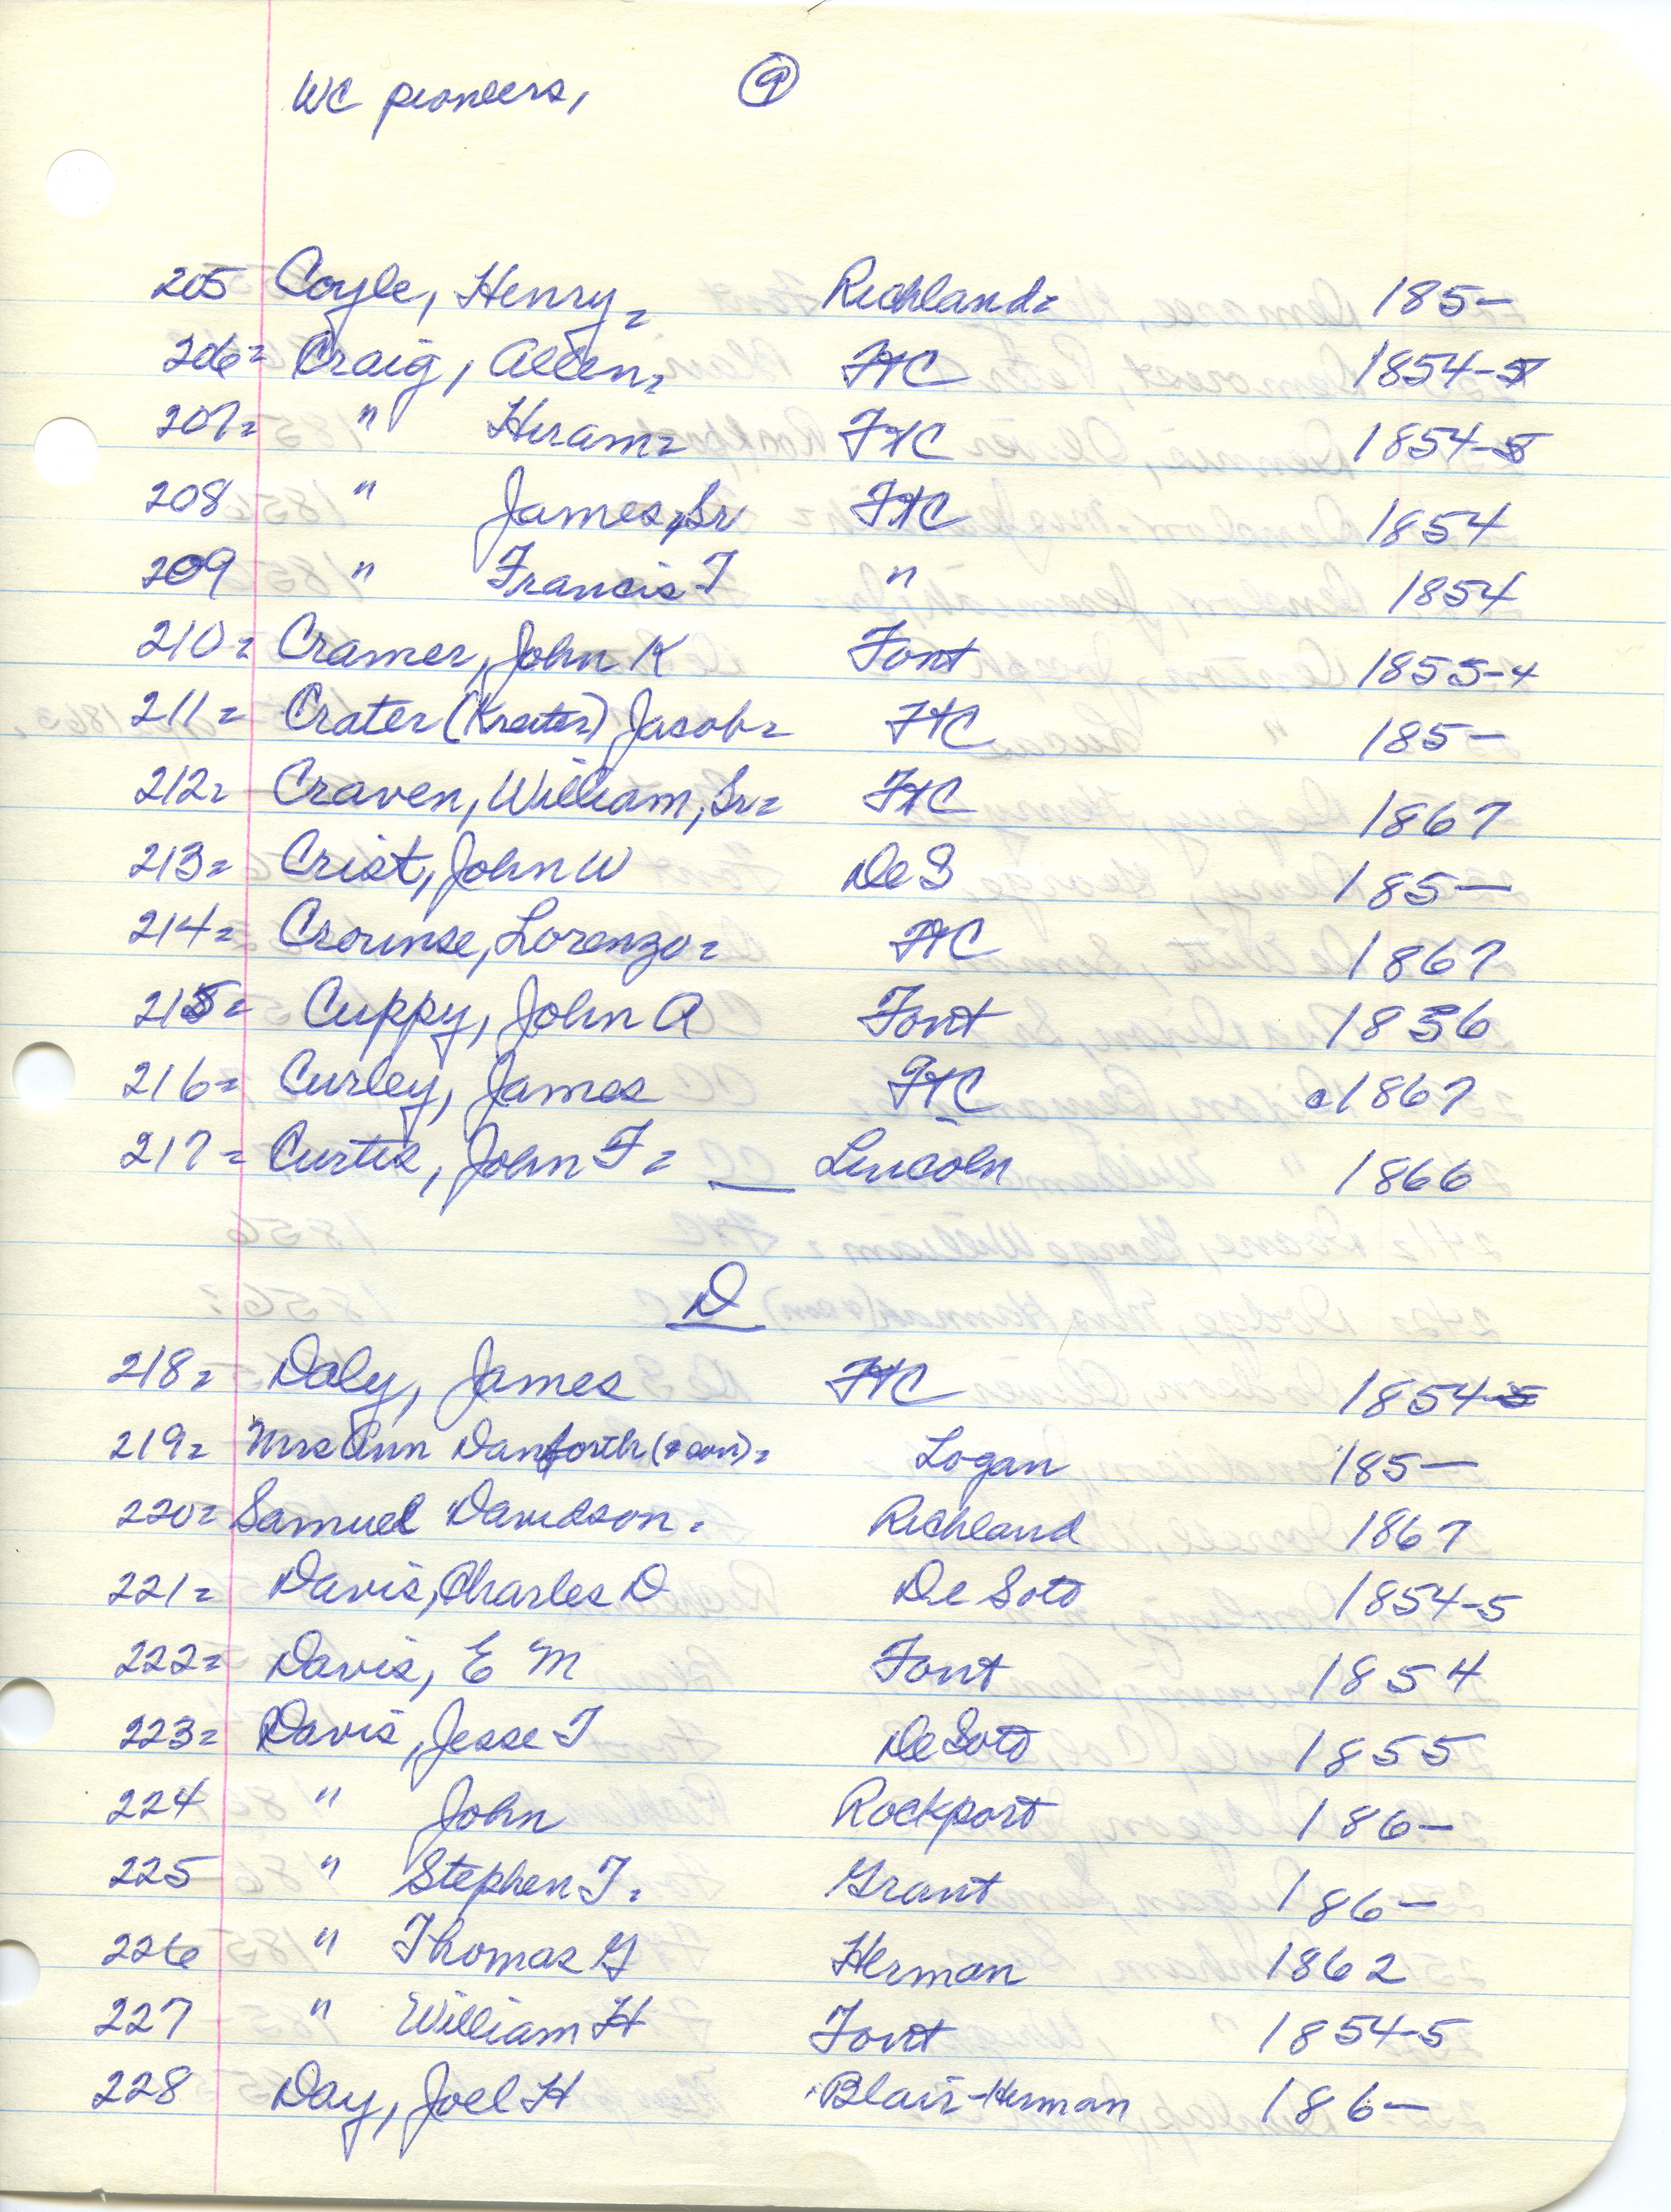 WC pioneers, 9
205 Coyle, Henry= Richland= 185-
206= Craig, Allen= FtC 1854-5
207= " Hiram= FtC 1854-5
208 " James, Sr FtC 1854
209 " Francis T " 1854
210= Cramer, John K Font 1855-4
211= Crater (Kreiter) Jacob= FtC 185-
212= Craven, William, Sr= FtC 1867
213= Crist, John W De S 185-
214= Crounse, Lorenzo= FtC 1867
215= Cuppy, John A Font 1856
216= Curley, James FtC c1867
217= Curtis, John F= Lincoln 1866
D
218= Daly, James FtC 1854-5
219= Mrs Ann Danforth (& son)= Logan 185-
220= Samuel Davidson= Richland 1867
221= Davis, Charles D De Soto 1854-5
222= Davis, E M Font 1854
223= Davis, Jesse T De Soto 1855
224 " John Rockport 186-
225 " Stephen T= Grant 186-
226 " Thomas G Herman 1862
227 " William H Font 1854-5
228 Day, Joel H Blair-Herman 186-